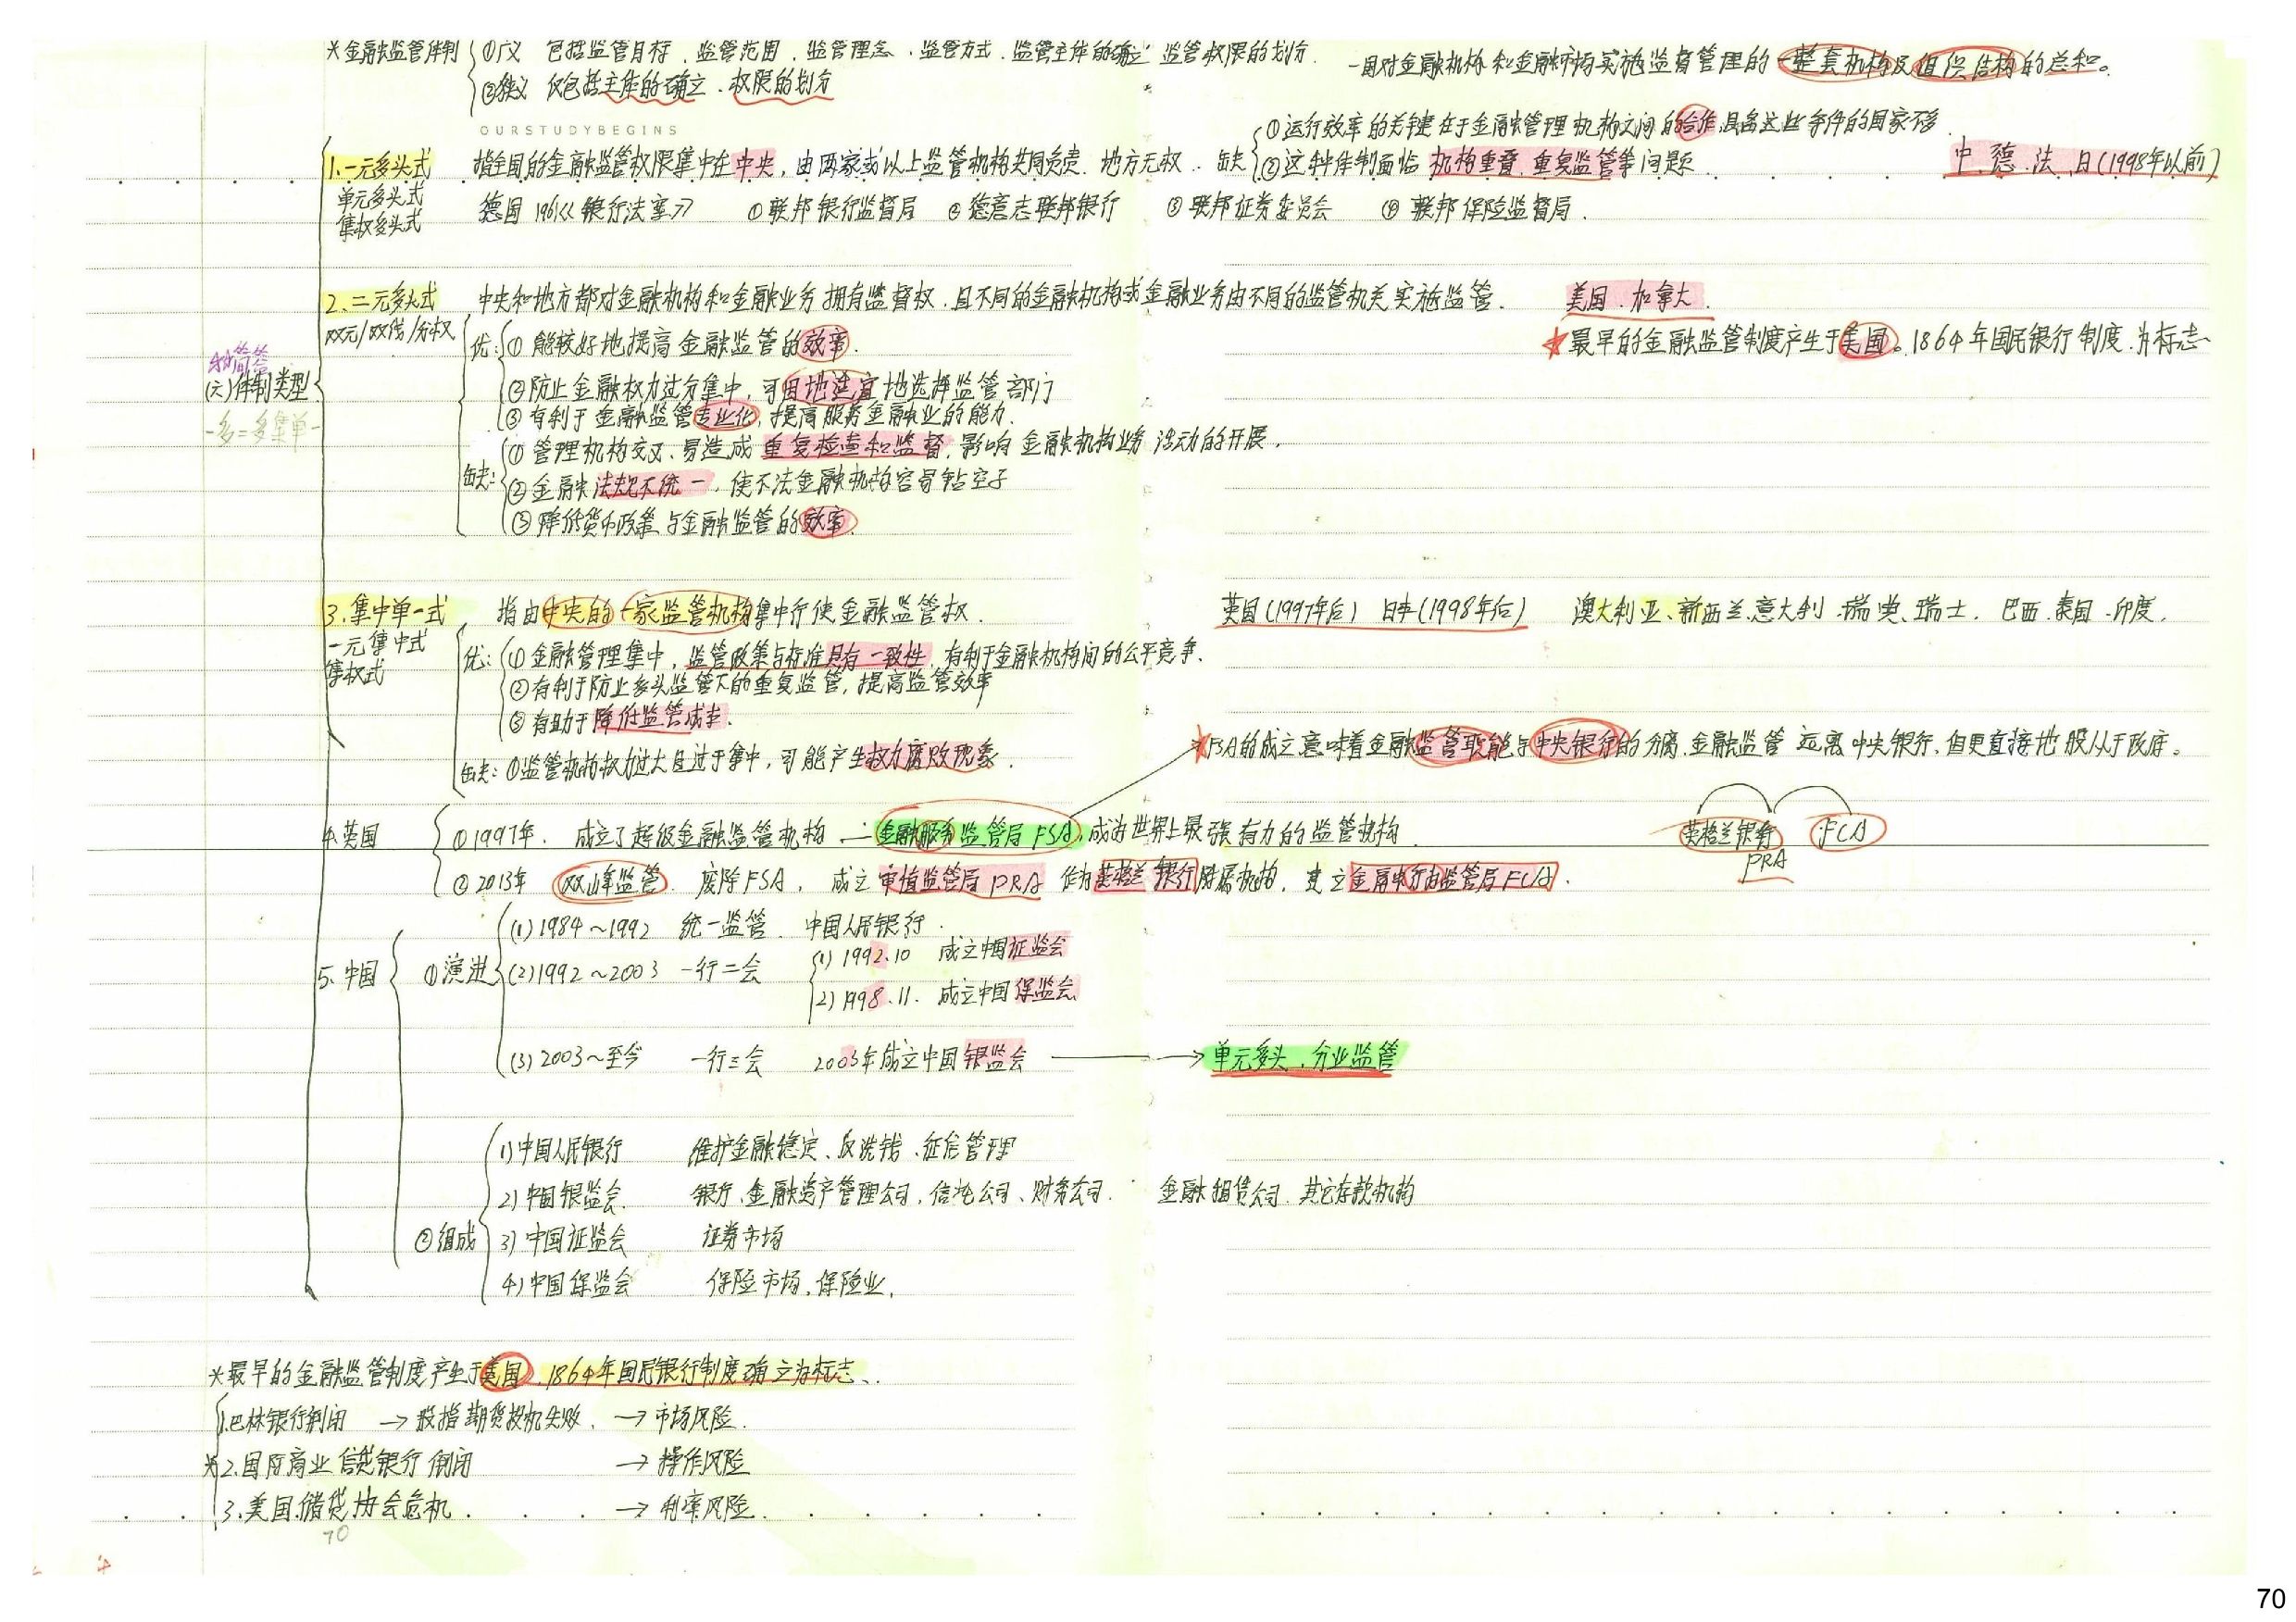 *金融监管体制 ①广义 包括监管目标、监管范围、监管理念、监管方式、监管主体的确立 监管权限的划分. 一国对金融机构和金融市场实施监督管理的一整套机构及组织结构的总和。
②狭义 仅包括主体的确立、权限的划分
OURSTUDYBEGINS
①运行效率的关键在于金融管理机构之间的合作,具备这些条件的国家不多.
1.一元多头式 指全国的金融监管权限集中在中央,由两家或以上监管机构共同负责.地方无权. 缺 ②这种体制面临机构重叠.重复监管等问题 中.德.法.日(1998年以前)
单元多头式 德国 1961《银行法案》 ①联邦银行监督局 ②德意志联邦银行 ③联邦证券委员会 ④联邦保险监督局.
集权多头式
2.二元多头式 中央和地方都对金融机构和金融业务拥有监督权.且不同的金融机构或金融业务由不同的监管机关实施监管. 美国.加拿大.
双元/双线/分权 优:①能较好地提高金融监管的效率. ★最早的金融监管制度产生于美国。1864年国民银行制度.为标志
简答
(六)体制类型 ②防止金融权力过分集中,可因地适宜地选择监管部门
一多二多集单一 ③有利于金融监管专业化,提高服务金融业的能力.
缺:①管理机构交叉、易造成重复检查和监督,影响金融机构业务活动的开展.
②金融法规不统一,使不法金融机构容易钻空子
③降低货币政策与金融监管的效率.
3.集中单一式 指由中央的一家监管机构集中行使金融监管权. 英国(1997年后) 日本(1998年后) 澳大利亚、新西兰.意大利.瑞典、瑞士. 巴西.泰国.印度.
一元集中式
集权式 优:①金融管理集中,监管政策与标准具有一致性,有利于金融机构间的公平竞争.
②有利于防止多头监管下的重复监管,提高监管效率
③有助于降低监管成本.
缺:①监管机构权力过大且过于集中,可能产生权力腐败现象.
★FSA的成立意味着金融监管职能与中央银行的分离.金融监管远离中央银行,但更直接地服从于政府。
4.英国 ①1997年.成立了超级金融监管机构—金融服务监管局FSA,成为世界上最强有力的监管机构. 英格兰银行 FCA
PRA
②2013年 双峰监管.废除FSA,成立审慎监管局PRA 作为英格兰银行附属机构,建立金融行为监管局FCA.
5.中国 ①演进 (1)1984~1992 统一监管.中国人民银行.
(2)1992~2003 一行二会 (1) 1992.10 成立中国证监会
2) 1998.11. 成立中国保监会
(3)2003~至今 一行三会 2003年成立中国银监会 → 单元多头.分业监管
②组成 1)中国人民银行 维护金融稳定、反洗钱、征信管理
2)中国银监会. 银行、金融资产管理公司,信托公司、财务公司. 金融租赁公司.其它存款机构
3)中国证监会 证券市场
4)中国保监会 保险市场,保险业.
*最早的金融监管制度产生于美国.1864年国民银行制度确立为标志.
1.巴林银行倒闭 → 股指期货投机失败. → 市场风险.
*2.国际商业信贷银行倒闭 → 操作风险
3.美国.储贷协会危机. → 利率风险.
70
70